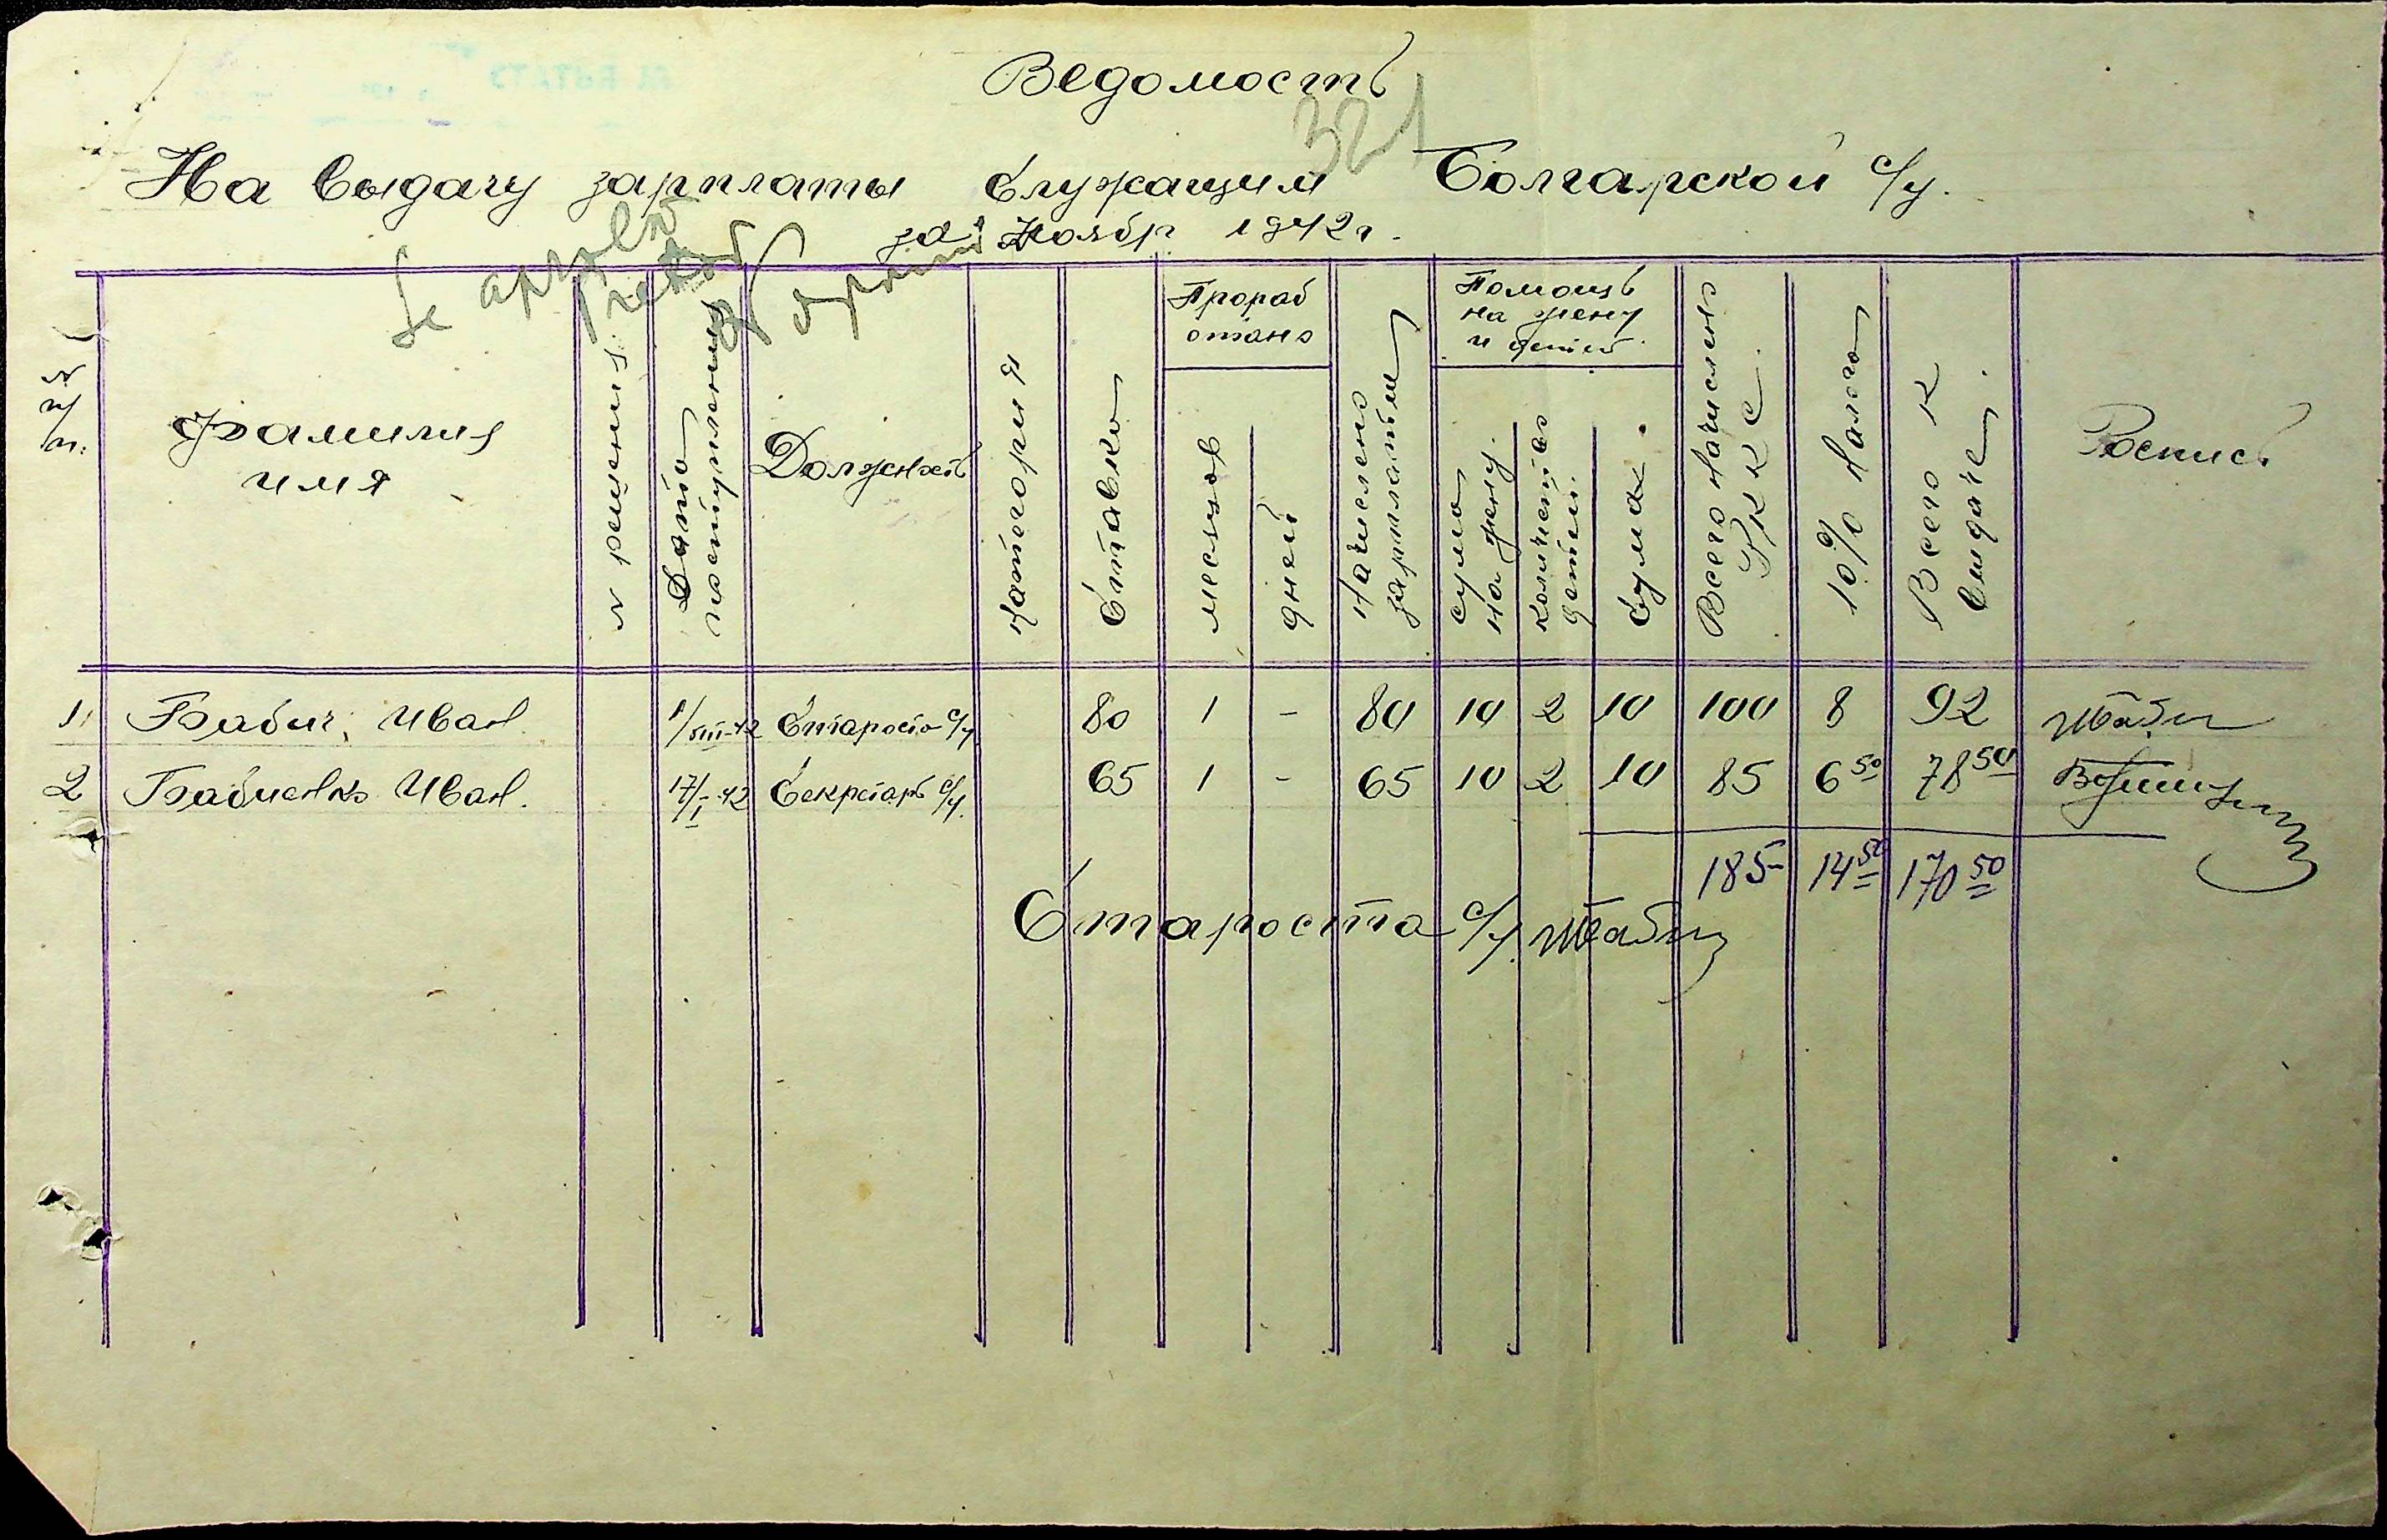 Ведомость
321
На выдачу зарплаты служащим Болгарской с/у.
за Ноябр 1942 г.
Se aprobă
№ п/п.
Фамилия имя
№ решения
Дата поступления
Должность
Категория
Ставка
Прораб отано
месяцов
дней
Начислено зарплаты
Помощь на жену и детей
сума на жену.
количество детей.
Сума.
Всего начислено РККС.
10% налога
Всего к выдаче.
Роспись
1 Бабич, Иван 1/VIII-42 Староста с/у 80 1 - 80 10 2 10 100 8 92
2 Бабиенко Иван. 17/I-42 Секретарь с/у. 65 1 - 65 10 2 10 85 6 50 78 50
185- 14 50 170 50
Староста с/у.